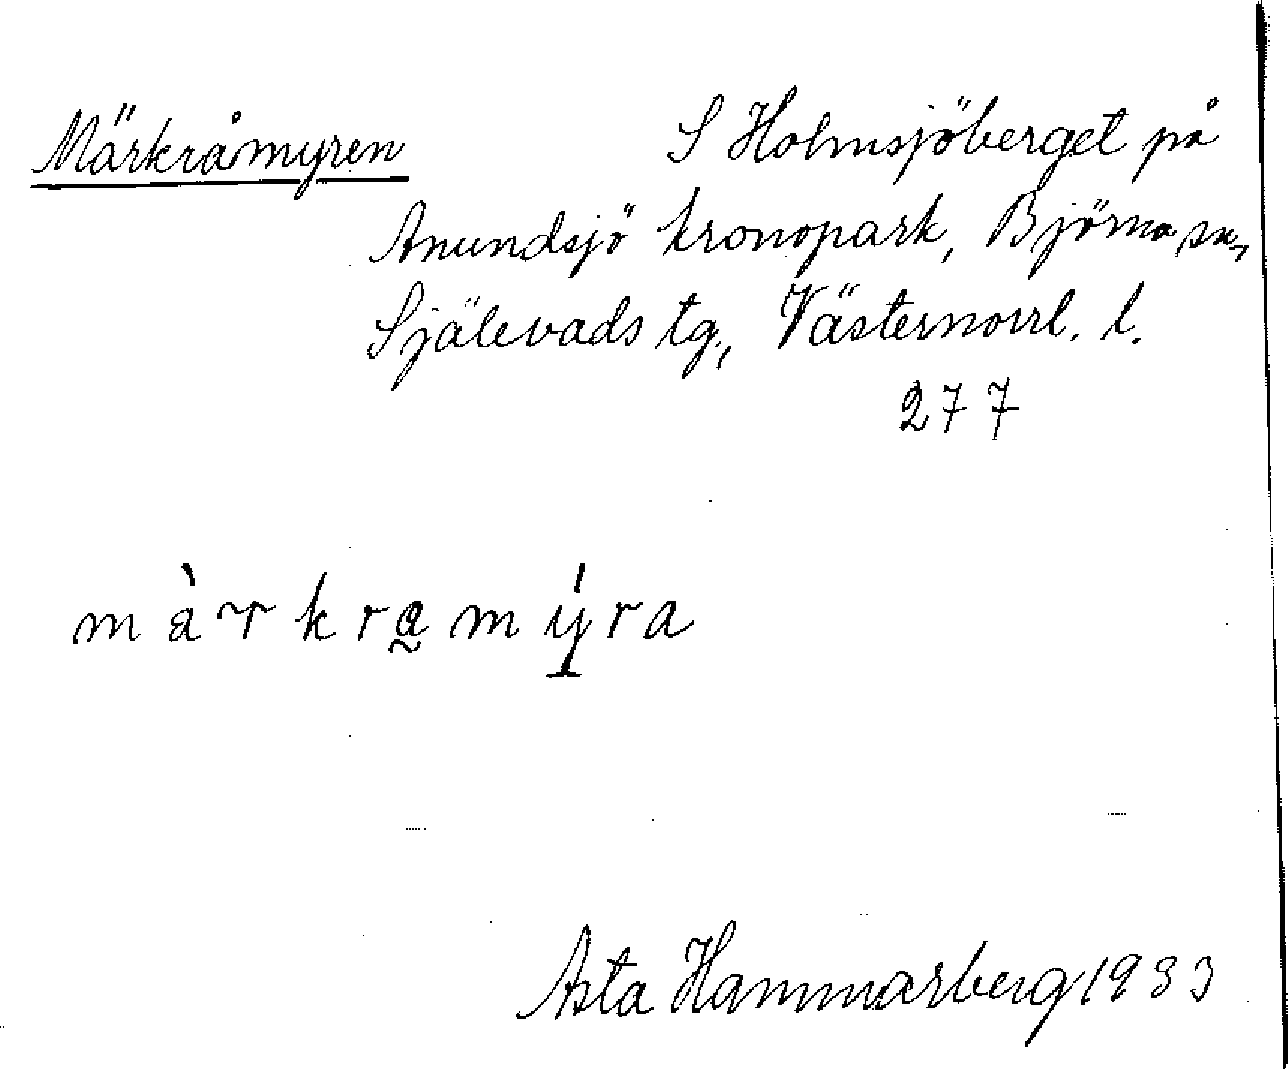 Märkråmyren S Holmsjöberget på
Anundsjö kronopark, Björna sn,
Själevads tg, Västernorrl. l.
277
màrkramýra
Asta Hammarberg 1933